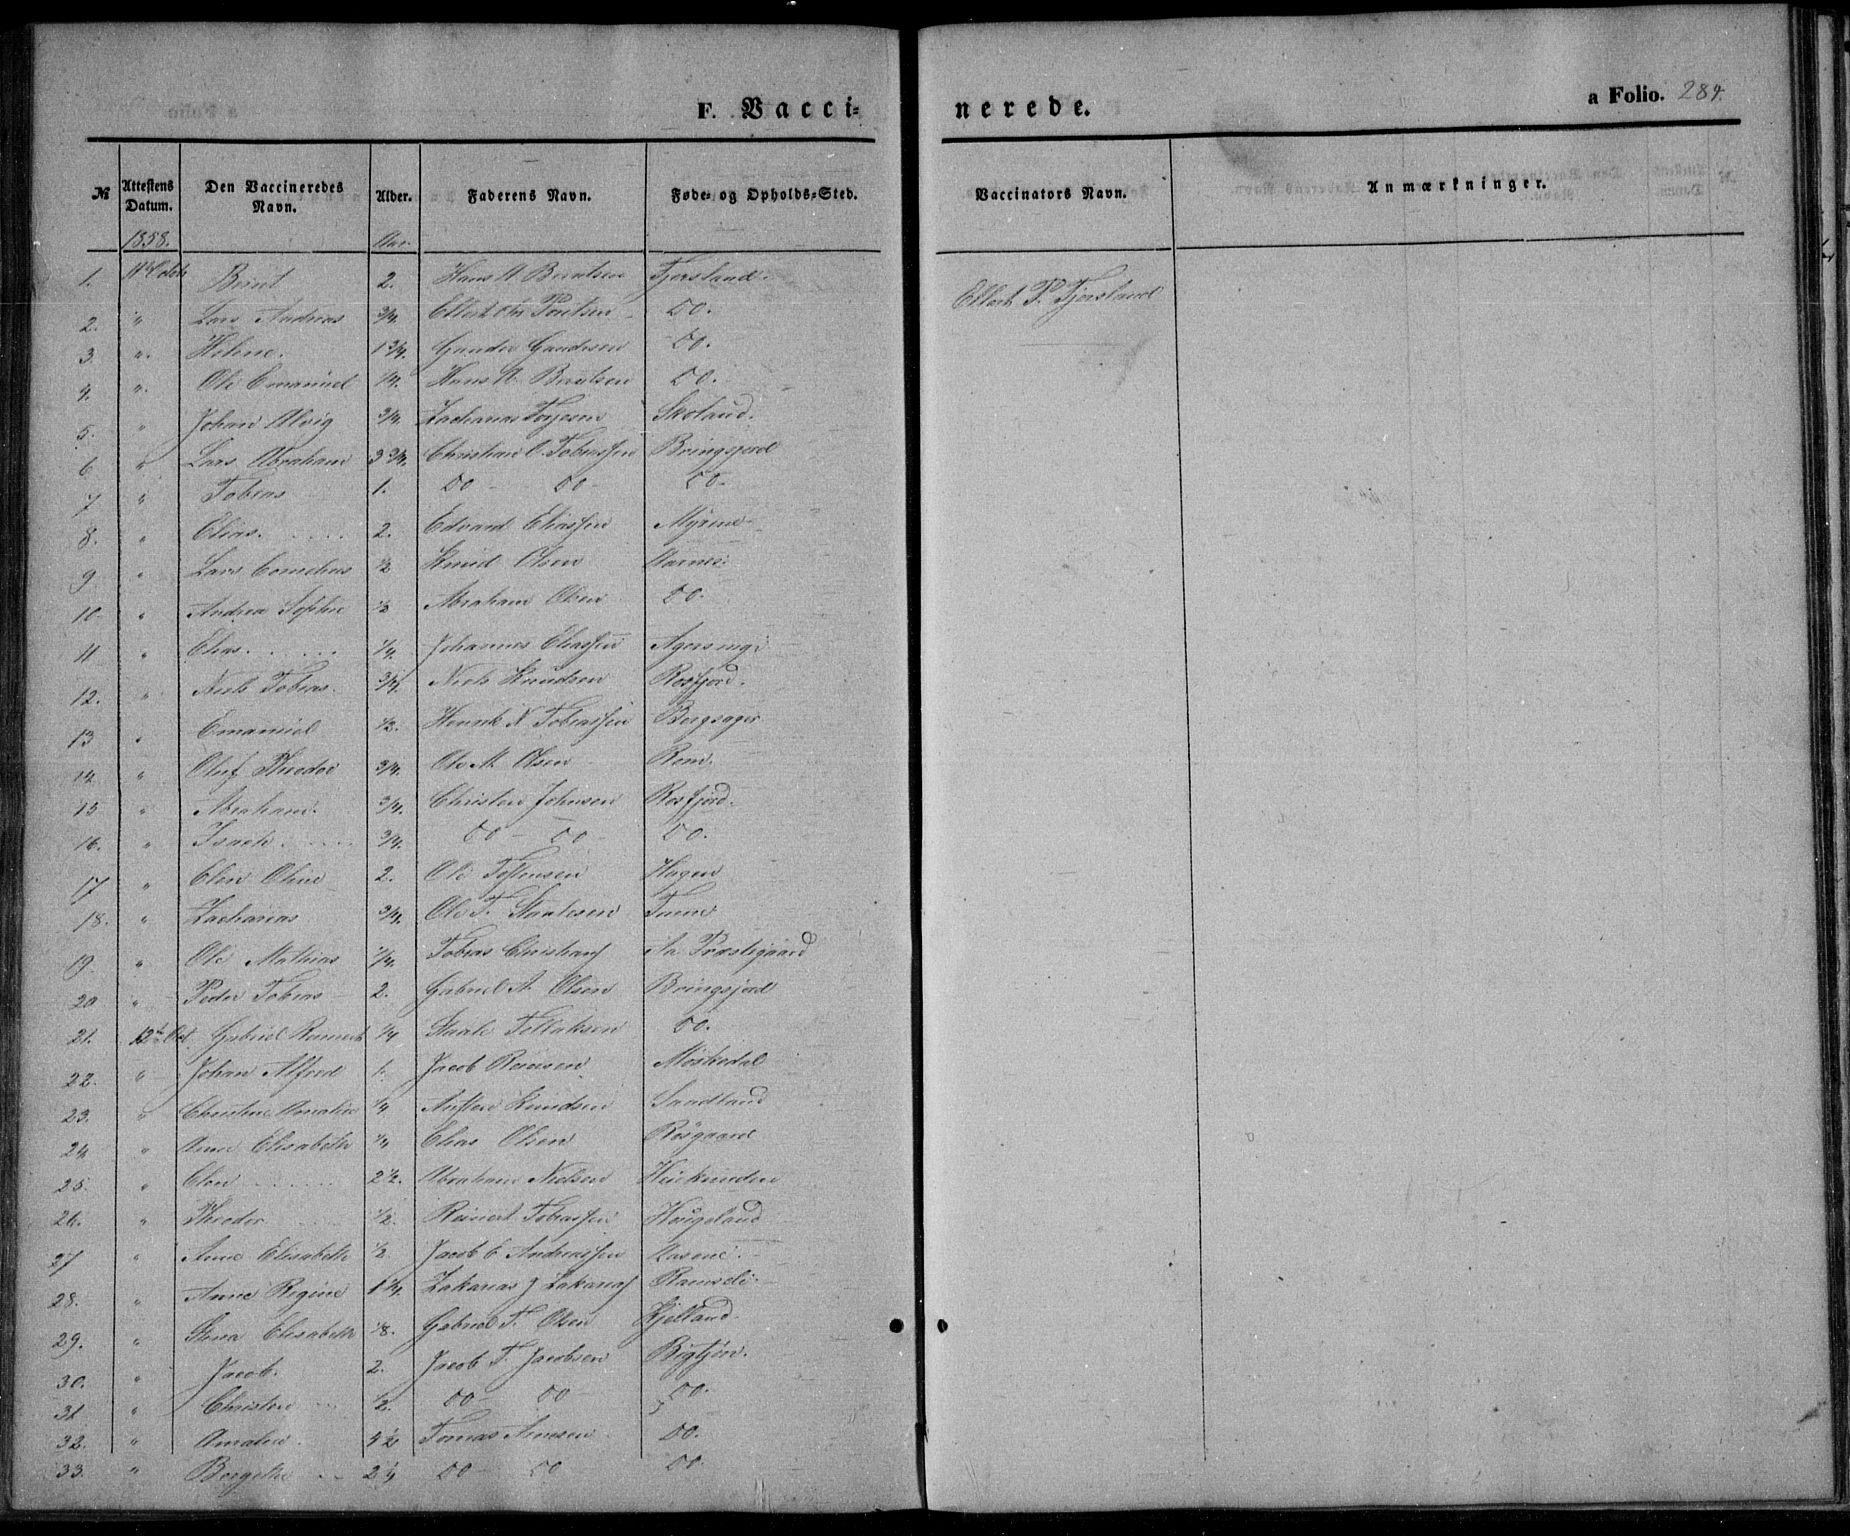 F. Vaccinerede. a Folio. 284.
№ Attestens Datum. Den Vaccineredes Navn. Alder. Faderens Navn. Føde- og Opholds-Sted. Vaccinators Navn. Anmærkninger.
1858. Aar.
1. 11te Octob Bernt 2. Hans A Berntsen Fjersland. Ellert P. Fjersland
2. " Lars Andreas 3/4. Ellert Chr Berntsen Do.
3. " Helene. 1 3/4. Gunder Gundersen Do.
4. " Ole Emanuel 1/4. Hans A. Berntsen Do.
5. " Johan Alvig 3/4. Zacharias Torjesen Skoland.
6 " Lars Abraham 3 3/4. Christian O. Tobiassen Bringsjord
7 " Tobias 1. Do - Do - Do -
8. " Elias. 2. Edvard Eliassen Myrene
9 " Lars Cornelius 1/2 Knud Olsen Aarnes.
10 " Andrea Sophie 1/2 Abraham Olsen Do.
11 " Elias. 1/4. Johannes Eliassen
12. " Niels Tobias. 3/4. Niels Knudsen Rosfjord.
13 " Emanuel 1/2. Henrik N Tobiassen Bergsager
14 " Oluf Theodor 3/4. Ole M. Olsen Rom.
15 " Abraham. 3/4. Christen Johnsen Rosfjord.
16. " Isach. 3/4. Do - Do - Do.
17 " Elen Oline 2. Ole Hagen
18. " Zacharias 3/4. Ole T. Staalesen
19. " Ole Mathias 1/4. Tobias Christians Præstegaard
20 " Peder Tobias 2. Gabriel A. Olsen Bringsjord
21. 12te Oct Gabriel Reinert 1/4 Staale Tellaksen Do.
22. " Johan Alfred 1. Jacob Møskedal
23. " Christine Amalie 1/4 Knudsen Sandland
24 " Anne Elisabeth 1/4 Elias Olsen Røsgaard
25. " Elen 2 1/2. Abraham Nielsen
26. " Theodor 1/2. Reinert Tobiassen Høugeland
27 " Anne Elisabeth 1/2. Jacob E Andreassen Aasene.
28. " Anne Regine 1 1/4. Zakarias J Zakarias Ramsli.
29. " Stina Elisabeth 1/8. Gabriel T. Olsen Kjelland.
30. " Jacob. 2. Jacob T. Jacobsen Bigtjøn.
31 " Christen 1/2. Do - Do - Do.
32. " Amalie. 4 1/2 Tomas Do.
33. " Bergithe 2 1/4 Do - Do Do.